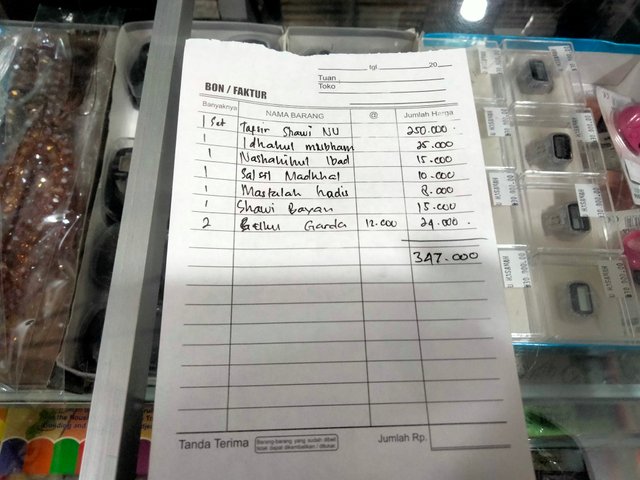 tgl. 20
Tuan
Toko
BON / FAKTUR
Banyaknya NAMA BARANG @ Jumlah Harga
1 Set Tafsir Shawi NU 250.000
1 Idhahul mubham 25.000
1 Nashahihul Ibad 15.000
1 Madkhal 10.000
1 Mastalah hadis 8.000
1 Shawi Bayan 15.000
2 Garda 12.000 24.000
347.000
Tanda Terima
Barang-barang yang sudah dibeli
tidak dapat dikembalikan / ditukar.
Jumlah Rp.
U HASANAH